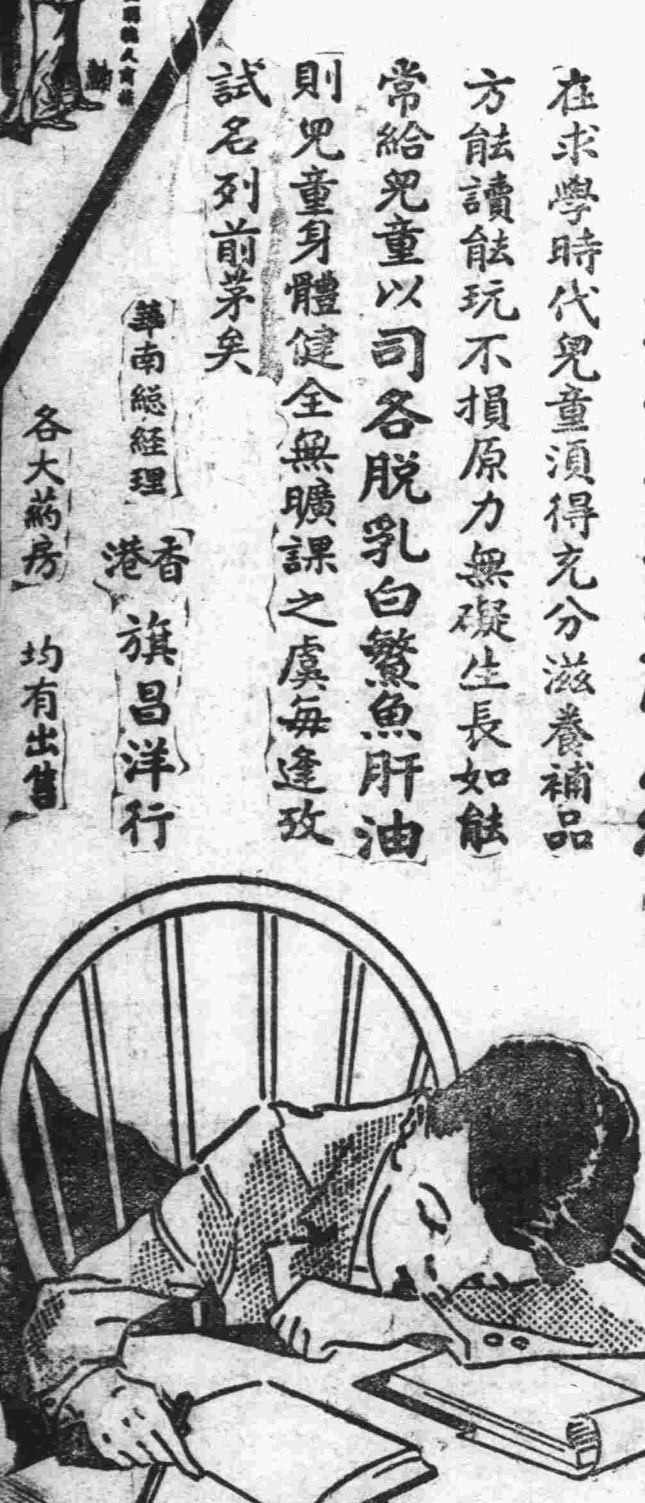 在求學時代兒童須得充分滋養補品
方能讀能玩不損原力無礙生長如能
常給兒童以司各脫乳白鰵魚肝油
則兒童身體健全無曠課之虞每逢攷
試名列前茅矣
華南総経理
香港
旗昌洋行
各大葯房
均有出售